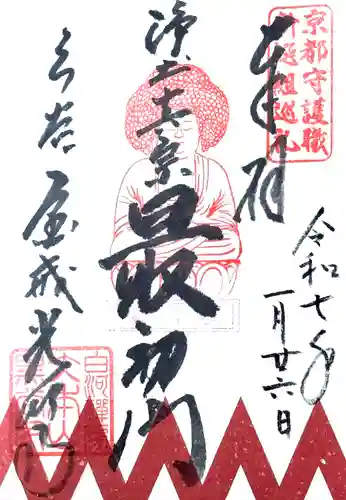 京都守護職
新選組巡礼
奉拝
令和七年
一月廿六日
浄土真宗最初門
くろ谷 金戒光明寺